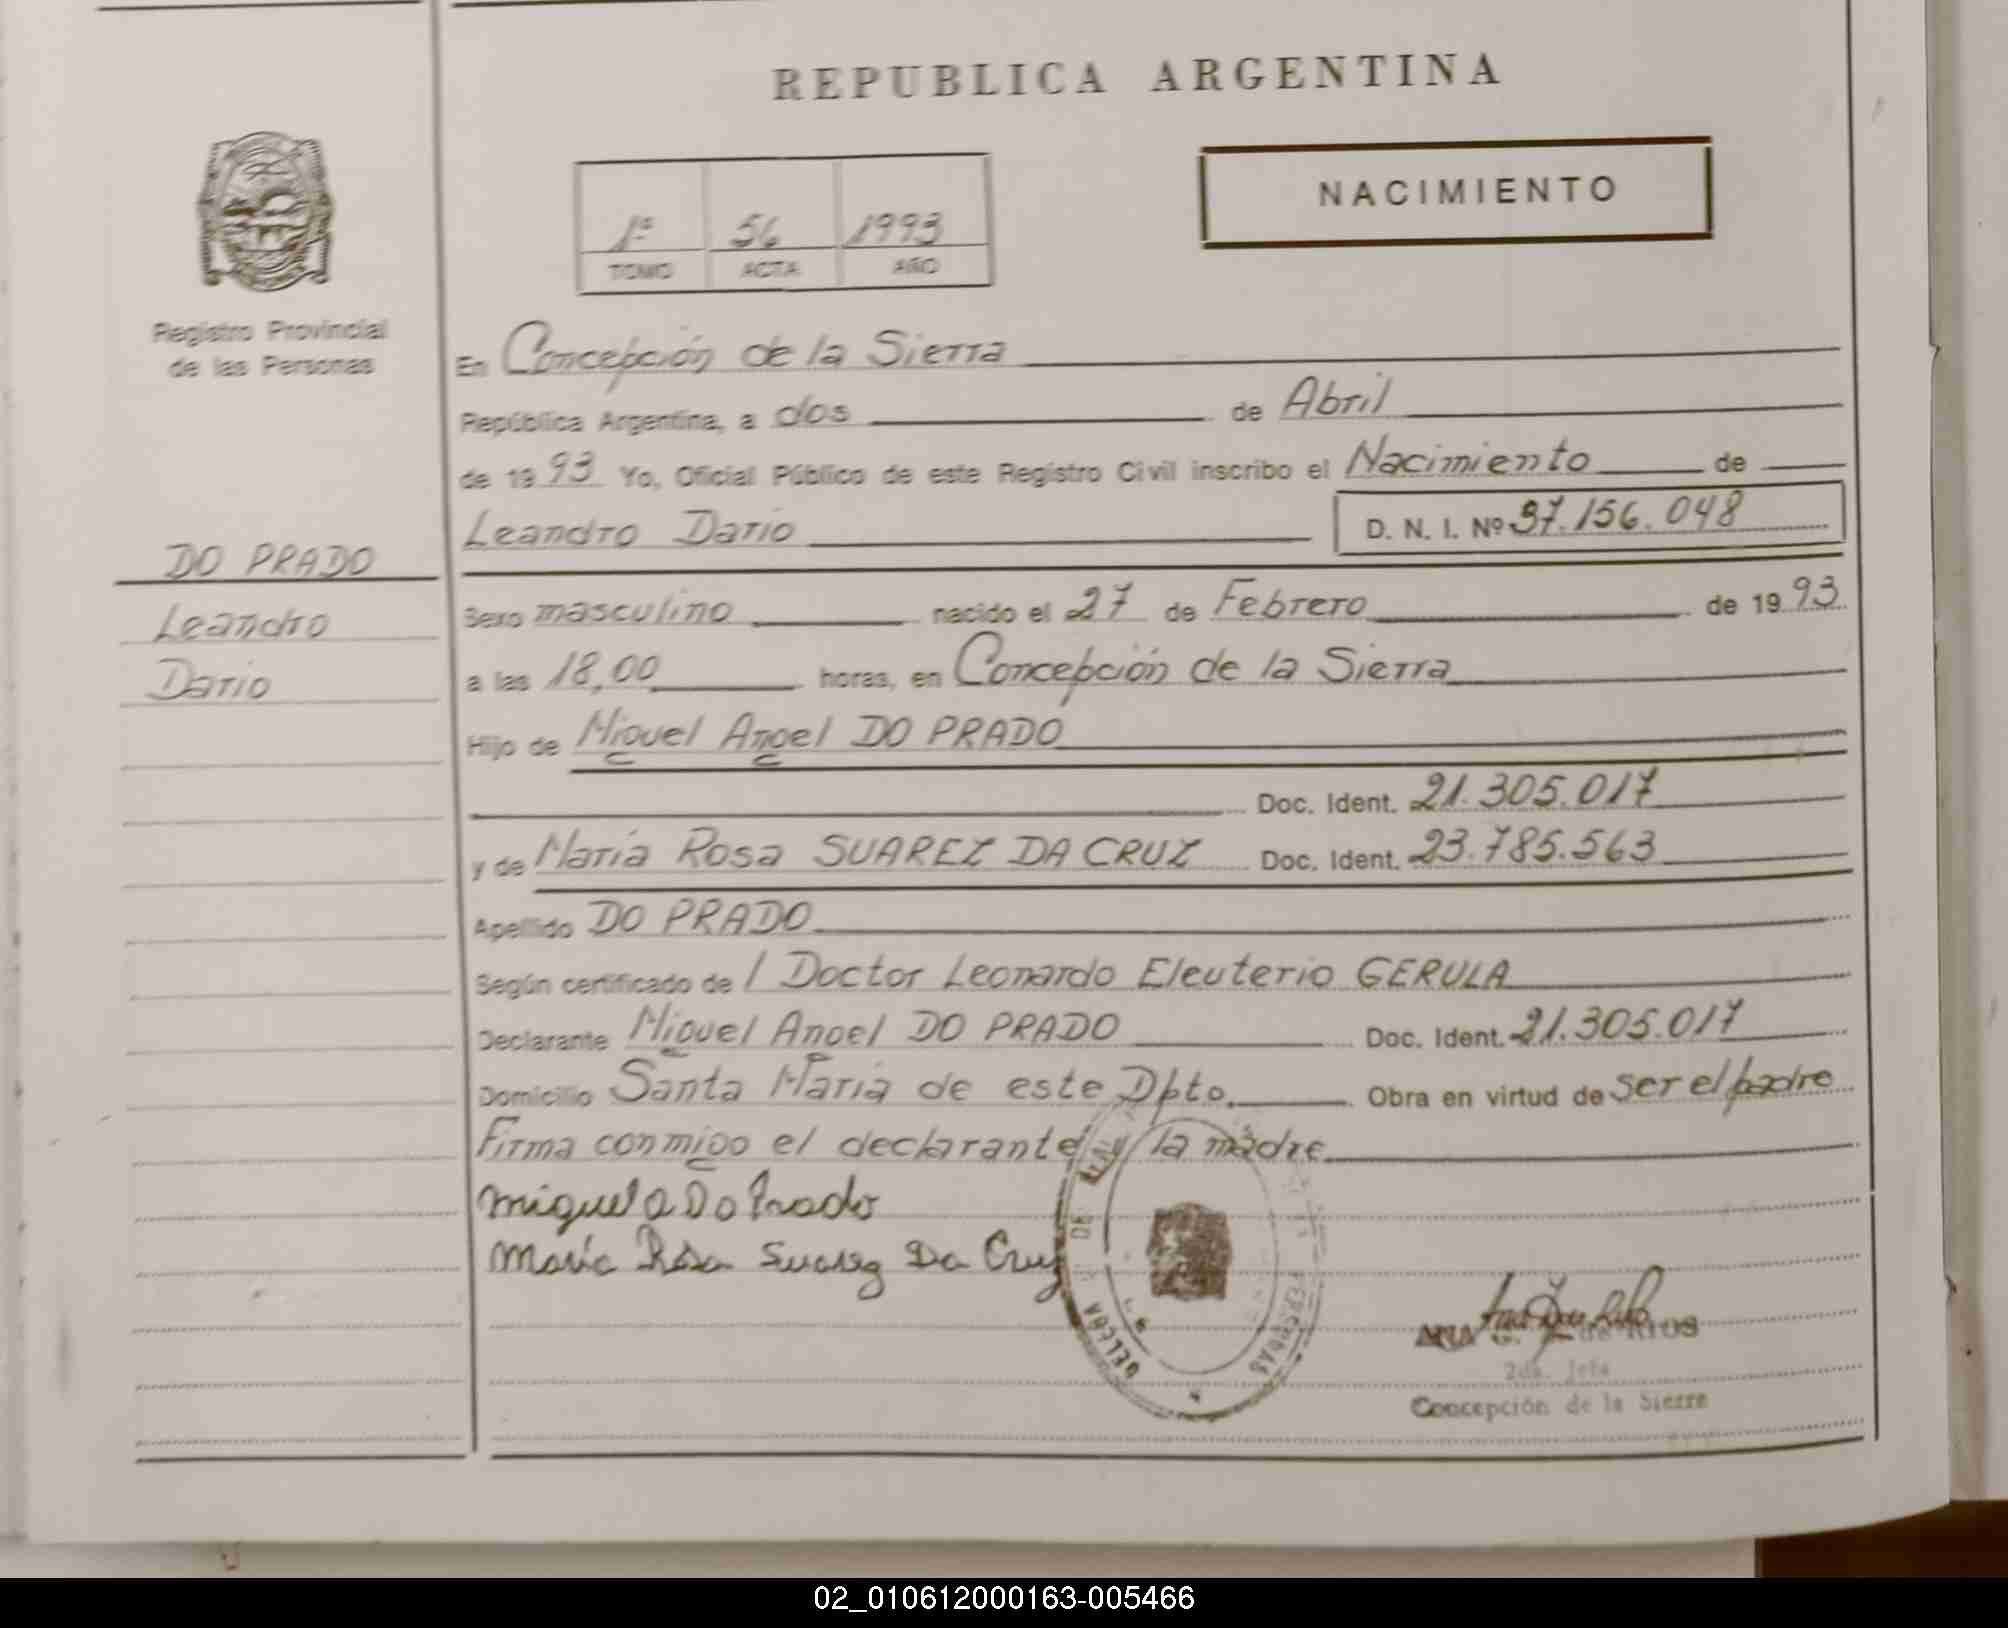 REPUBLICA ARGENTINA
NACIMIENTO
1º 56 1993
TOMO ACTA AÑO
Registro Provincial
de las Personas
En Concepción de la Sierra
República Argentina, a dos de Abril
de 1993 Yo, Oficial Público de este Registro Civil inscribo el Nacimiento de
Leandro Dario D. N. I. Nº 37.156.048
DO PRADO
Leandro
Dario
Sexo masculino nacido el 27 de Febrero de 1993
a las 18,00 horas, en Concepción de la Sierra
Hijo de Miguel Angel DO PRADO
Doc. Ident. 21.305.017
y de María Rosa SUAREZ DA CRUZ Doc. Ident. 23.785.563
Apellido DO PRADO
Según certificado de l Doctor Leonardo Eleuterio GERULA
Declarante Miguel Angel DO PRADO Doc. Ident. 21.305.017
Domicilio Santa María de este Dpto. Obra en virtud de ser el padre
Firma conmigo el declarante y la madre
Miguel A Do Prado
María Rosa Suarez Da Cruz
de RIOS
2da. Jefa
Concepción de la Sierra
02_010612000163-005466